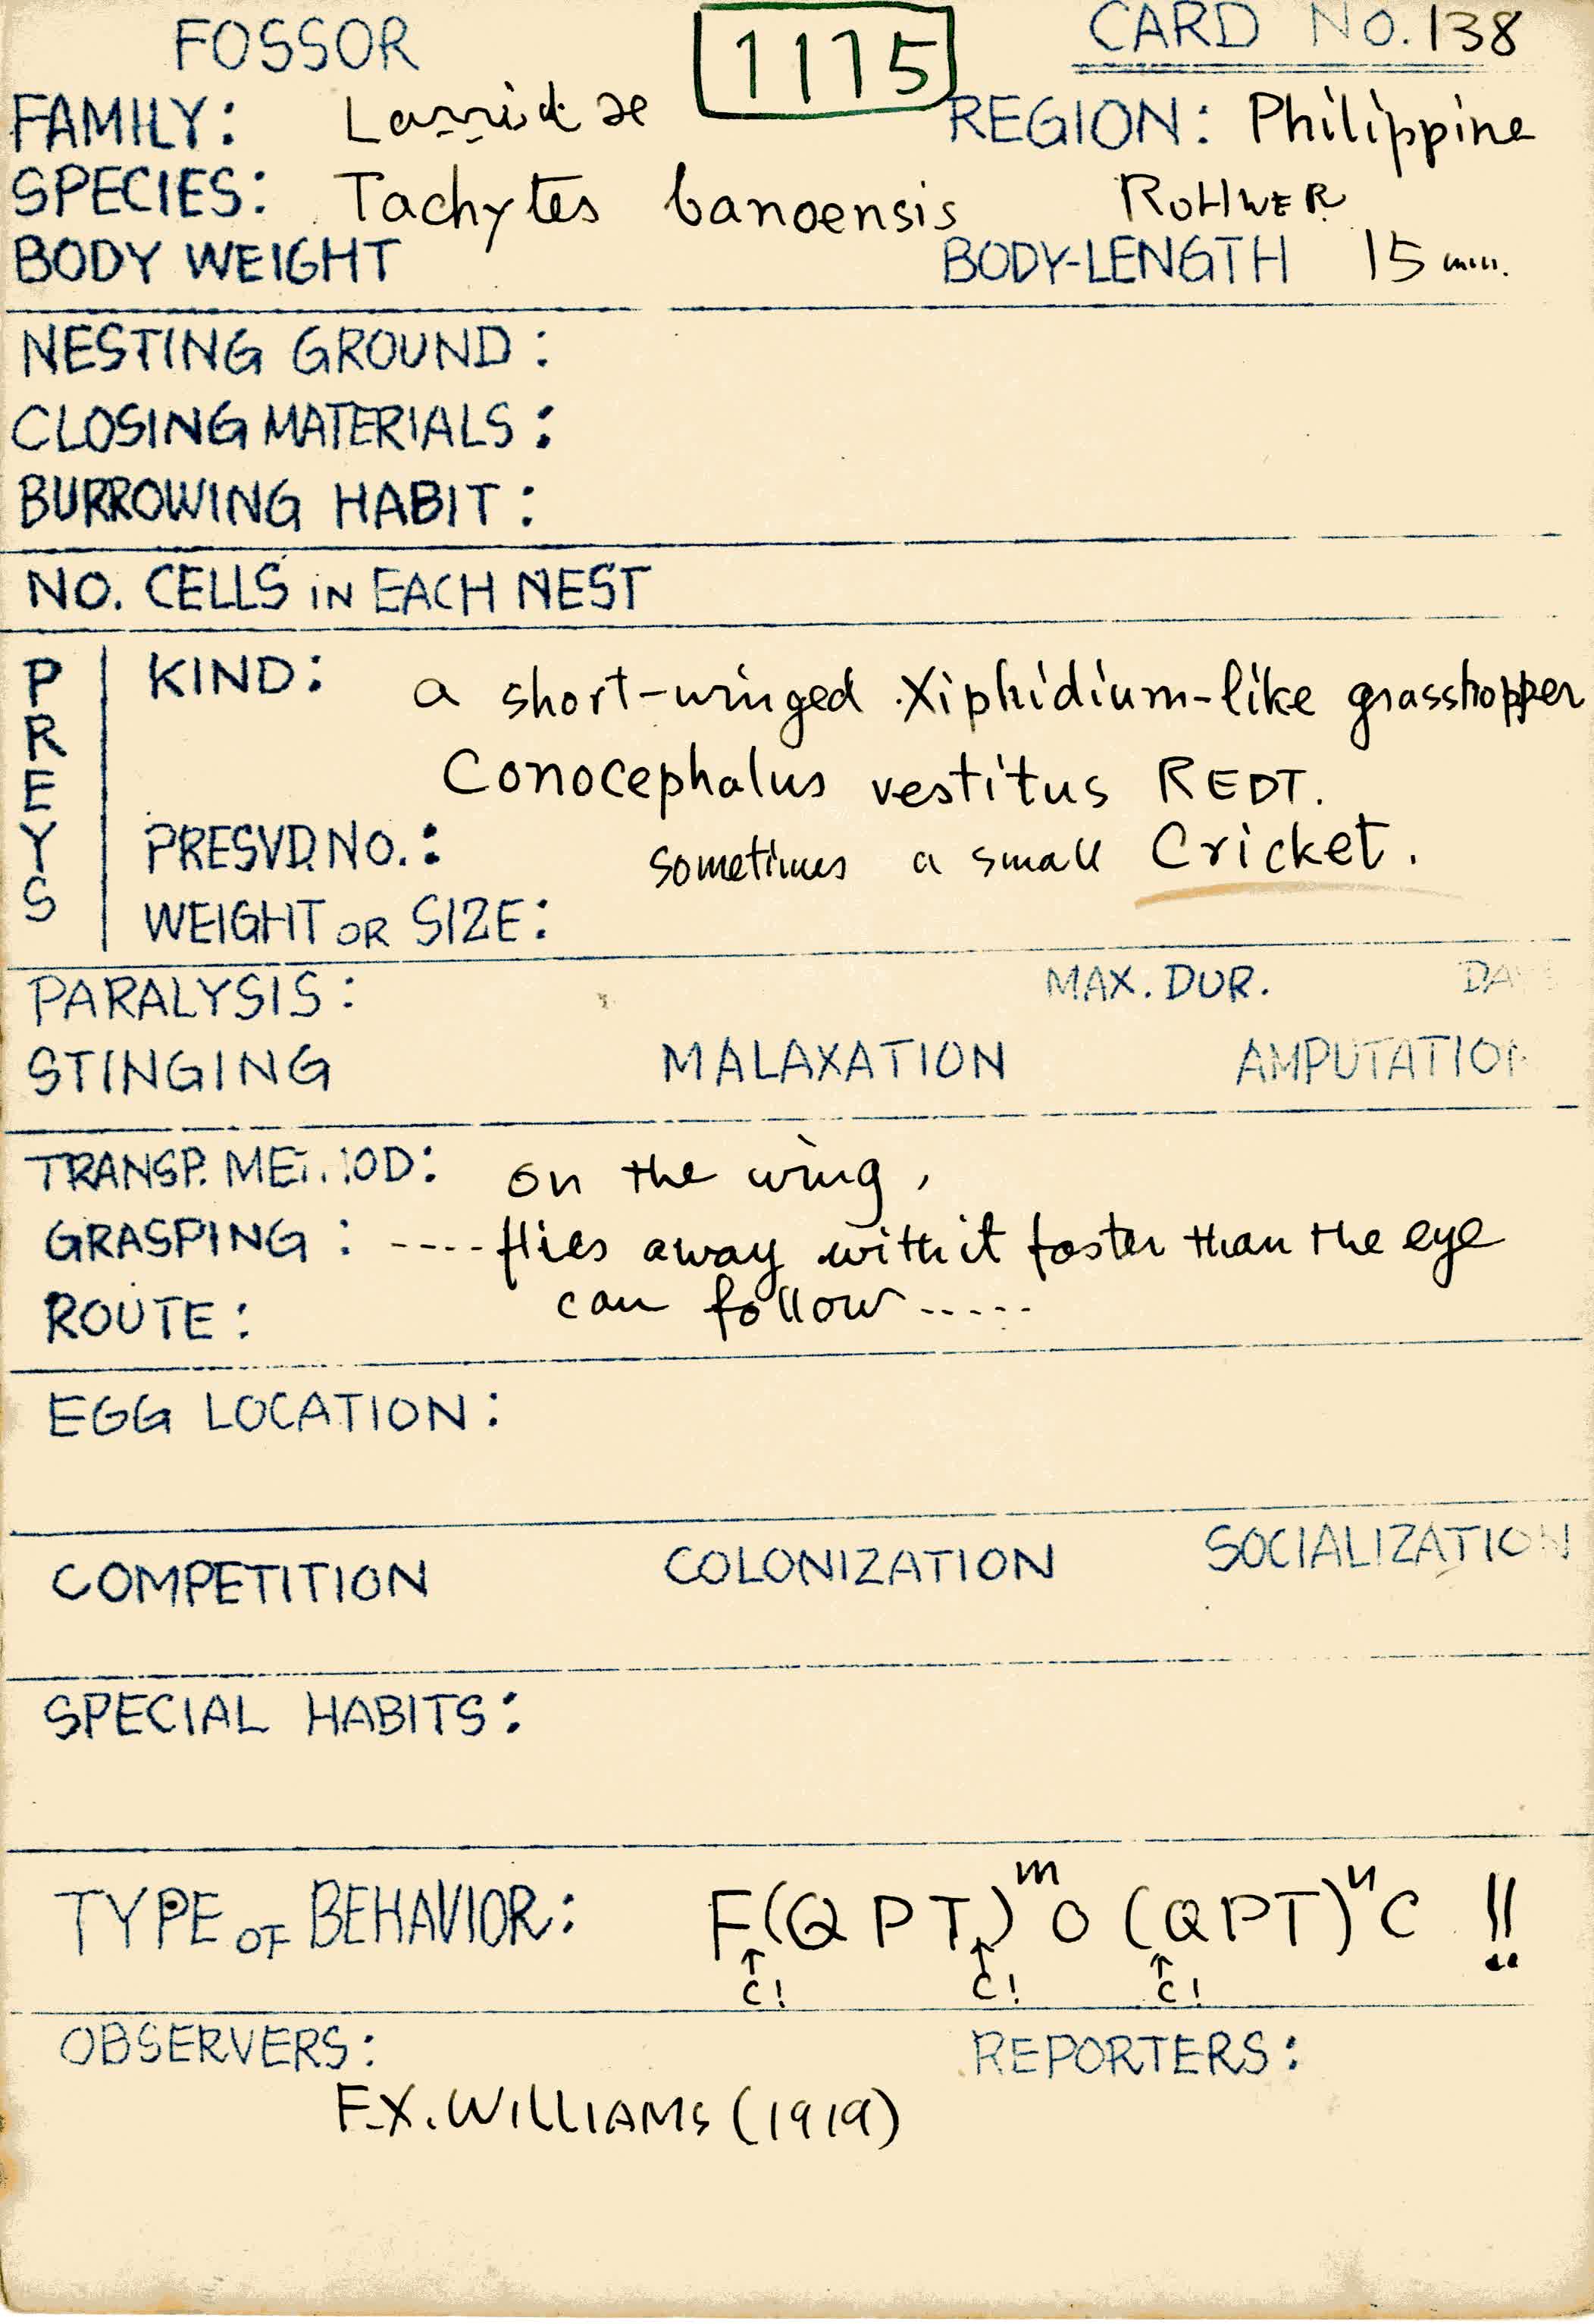 FOSSOR 1115 CARD NO. 138
FAMILY: Larridae REGION: Philippine
SPECIES: Tachytes banoensis ROHWER
BODY WEIGHT BODY-LENGTH 15 mm.
NESTING GROUND:
CLOSING MATERIALS:
BURROWING HABIT:
NO. CELLS iN EACH NEST
PREYS KIND: a short-winged Xiphidium-like grasshopper
Conocephalus vestitus REDT.
PRESVD. NO.: sometimes a small Cricket.
WEIGHT OR SIZE:
PARALYSIS: MAX. DUR. DA
STINGING MALAXATION AMPUTATION
TRANSP. METHOD: on the wing,
GRASPING: ---- flies away with it faster than the eye
ROUTE: can follow -----
EGG LOCATION:
COMPETITION COLONIZATION SOCIALIZATION
SPECIAL HABITS:
TYPE OF BEHAVIOR: F(QPT)ᵐO(QPT)ⁿC !!
↑ ↑ ↑
C! C! C!
OBSERVERS: REPORTERS:
F.X. WILLIAMS (1919)